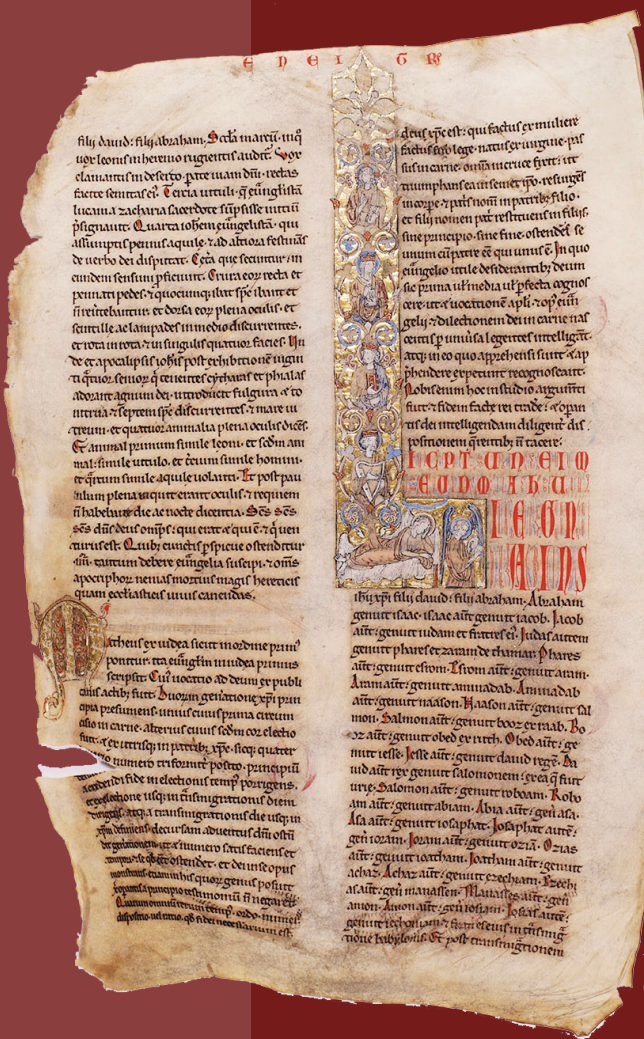 E U E I G R
filii david: filii abraham. Scda marcu. in q
vox leonis in heremo rugientis audit. Vox
clamantis in deserto. parate viam dni. rectas
facite semitas ei. Tercia vituli. q euglistā
lucam a zacharia sacerdote sūpsisse initiū
psignavit. Quarta iohem euglistā. qui
assumptis pennis aquile. & ad altiora festinās
de verbo dei disputat. Cetā que secuntur in
eundem sensum pficiunt. Crura eor recta et
pennati pedes. & quocumq ibat spc ibant et
n revertebantur. et dorsa eor plena oculis. et
scintille ac lampades in medio discurrentes.
et rota in rota. & in singulis quatuor facies. Un
de et apocalipsis iohis post exhibitionē vigin
ti qtuor senior. q tenentes cytharas et phialas
adorant agnum dei. introducit fulgura & to
nitrua & septem spc discurrentes. & mare vi
treum. et quatuor animalia plena oculis dicens.
Et animal primum simile leoni. et scdm ani
mal. simile vitulo. et tcium simile homini.
et qrtum simile aquile volanti. Et post pau
lulum plena inquit erant oculis. & requiem
n habebant die ac nocte dicentia. Scs scs
scs dns deus omps. qui erat & qui ē & q ven
turus est. Quib cunctis pspicue ostenditur
iiii. tantum debere euglia suscipi. & oms
apociphor nenias mortuis magis hereticis
quam ecclīasticis vivis canendas.
Matheus ex iudea sicut in ordine prim
ponitur. ita euglm in iudea primus
scripsit. Cui vocatio ad deum ex publi
canis actib fuit. Duorum in genatione xpi prin
cipia presumens. unius cuius prima circum
cisio in carne. alterius cuius scdm cor electio
fuit. & ex utrisq in patrib xpc. sicq quater
no numero triformit posito. principiū
a credendi fide in electionis temp porrigens.
et ex electione usq in tnsmigrationis diem
dirigens. atq a transmigrationis die usq in
xpm definiens. decursam adventus dni ostn
dit genationem. ut & numero satisfaciens et
tempori. & se qd eēt ostendet. et dei in se opus
monstrans. etiam in his quor genus posuit
xpi opantis a principio testimoniū n negaret.
Quarum omnium rerum temp. ordo. numer.
dispositio. vel ratio. qd fidei necessarium est.
deus xpc est: qui factus ex muliere
factus sub lege. natus ex virgine. pas
sus in carne. omīa in cruce fixit: ut
triumphans ea in semet ipso. resurgēs
in corpe. & patris nom in patrib. filio.
et filii nomen patri restituens in filiis.
sine principio. sine fine. ostendens se
unum cū patre eē qui unus ē. In quo
euglio utile desiderantib. deum
sic prima vel media vel pfecta cognos
cere. ut & vocationē apli. & op euan
gelii & dilectionem dei in carne nas
centis p univsa legentes intelligant.
atq in eo quo apprehensi sunt & ap
phendere expetunt recognoscant.
Nobis enim hoc in studio argumti
fuit. & fidem facte rei tradē. & opan
tis dei intelligendam diligent dis
positionem qrentib. n tacere.
I
ihu xpi filii david: filii abraham. Abraham
genuit isaac. isaac aut genuit iacob. Iacob
aut: genuit iudam et fratres ei. Iudas autem
genuit phares et zaram de thamar. Phares
aut: genuit esrom. Esrom aut: genuit aram.
Aram aut: genuit aminadab. Aminadab
aut: genuit naason. Naason aut: genuit sal
mon. Salmon aut: genuit booz ex raab. Bo
oz aut: genuit obed ex ruth. Obed aut: ge
nuit iesse. Iesse aut: genuit david regē. Da
vid aut rex genuit salomonem: ex ea q fuit
urie. Salomon aut: genuit roboam. Robo
am aut: genuit abiam. Abia aut: gen asa.
Asa aut: genuit iosaphat. Iosaphat aute:
gen ioram. Ioram aut: genuit oziā. Ozias
aut: genuit ioatham. Ioatham aut: genuit
achaz. Achaz aut: genuit ezechiam. Ezechi
as aut: gen manassen. Manasses aut: gen
amon. Amon aut: gen iosiam. Iosias aute:
genuit iechoniam & fratres eius in tnsmig
tione babylonis. Et post transmigtionem